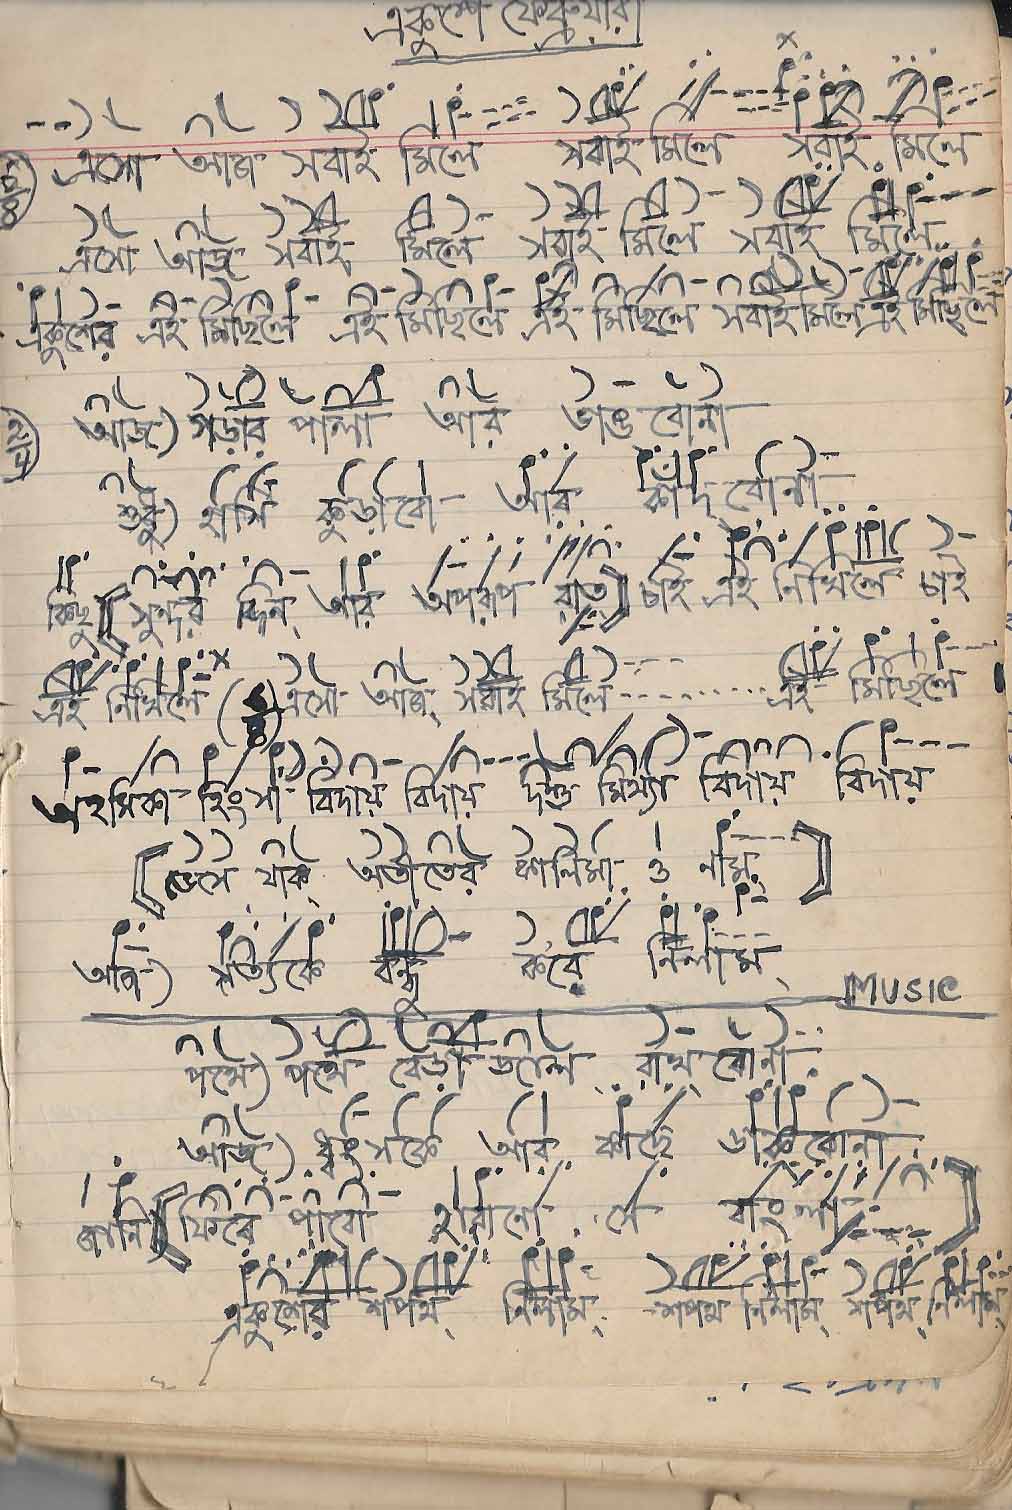 একুশে ফেব্রুয়ারী
৬/৮ এসো আজ সবাই মিলে সবাই মিলে সবাই মিলে
এসো আজ সবাই মিলে সবাই মিলে সবাই মিলে
একুশের এই মিছিলে এই মিছিলে এই মিছিলে সবাই মিলে এই মিছিলে
আজ) গড়ার পালা আর ভাঙবোনা
শুধু) হাসি কুড়াবো আর কাঁদবোনা
কিছু [সুন্দর দিন আর অপরূপ রাত] চাই এই নিখিলে চাই
এই নিখিলে এসো আজ সবাই মিলে ........ এই মিছিলে
অহমিকা হিংসা বিদায় বিদায় দম্ভ মিথ্যা বিদায় বিদায়
[ভেসে যাক্ অতীতের কালিমা ও নাম]
আজ) সত্যকে বন্ধু করে নিলাম
MUSIC
পথে) পথে বেড়া জাল রাখবোনা
আজ) ধ্বংসকে আর কাছে ডাকবোনা
জানি [ফিরে পাবো হারানো সে বাংলা]
একুশের শপথ্ নিলাম্ শপথ নিলাম্ শপথ্ নিলাম্